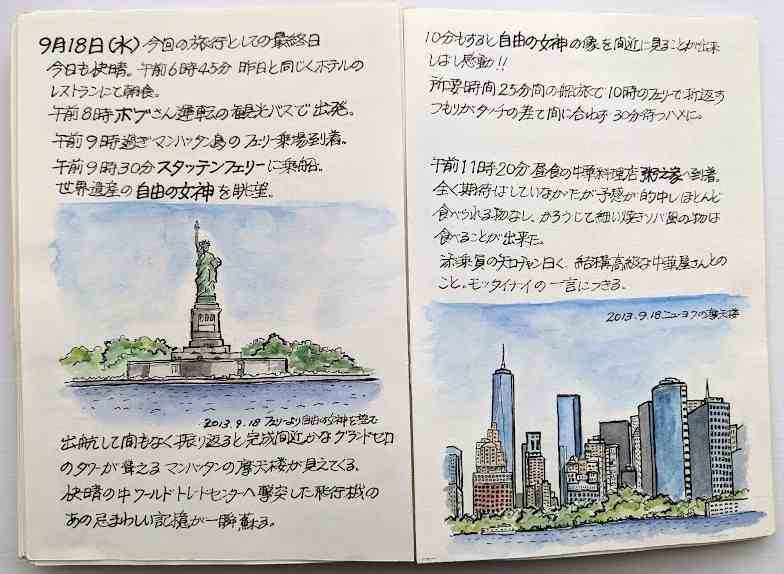 9月18日(水) 今回の旅行としての最終日
今日も快晴。午前6時45分 昨日と同じくホテルの
レストランにて朝食。
午前8時ボブさん運転の観光バスで出発。
午前9時過ぎマンハッタン島のフェリー乗場到着。
午前9時30分スタッテンフェリーに乗船。
世界遺産の自由の女神を眺望。
2013.9.18 フェリーより自由の女神を望む
出航して間もなく振り返ると完成間近かなグランドゼロ
のタワーが聳えるマンハッタンの摩天楼が見えてくる。
快晴の中ワールドトレドセンターへ撃突した飛行機の
あの忌まわしい記憶が一瞬、蘇る。
10分もすると自由の女神の像を間近に見ることが出来
しばし感動!!
所要時間25分間の船旅で10時のフェリーで折返す
つもりがタッチの差で間に合わず30分待つハメに。
午前11時20分昼食の中華料理店粥之家へ到着。
全く期待はしていなかたが予感が的中しほとんど
食べられる物なし、かろうじて細い焼きソバ風の物は
食べることが出来た。
添乗員の矢口チャン曰く、結構高級な中華屋さんとの
こと。モッタイナイの一言につきる。
2013.9.18 ニューヨークの摩天楼